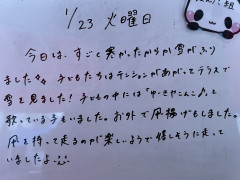 1/23 火曜日
今日は、すごく寒かったからか雪がふり
ました！！子どもたちはテンションがあがってテラスで
雪を見ました！子どもの中には「ゆきやこんこ♪」と
歌っている子もいました。お外で凧揚げもしました。
凧を持って走るのが楽しいようで嬉しそうに走って
いましたよ
組